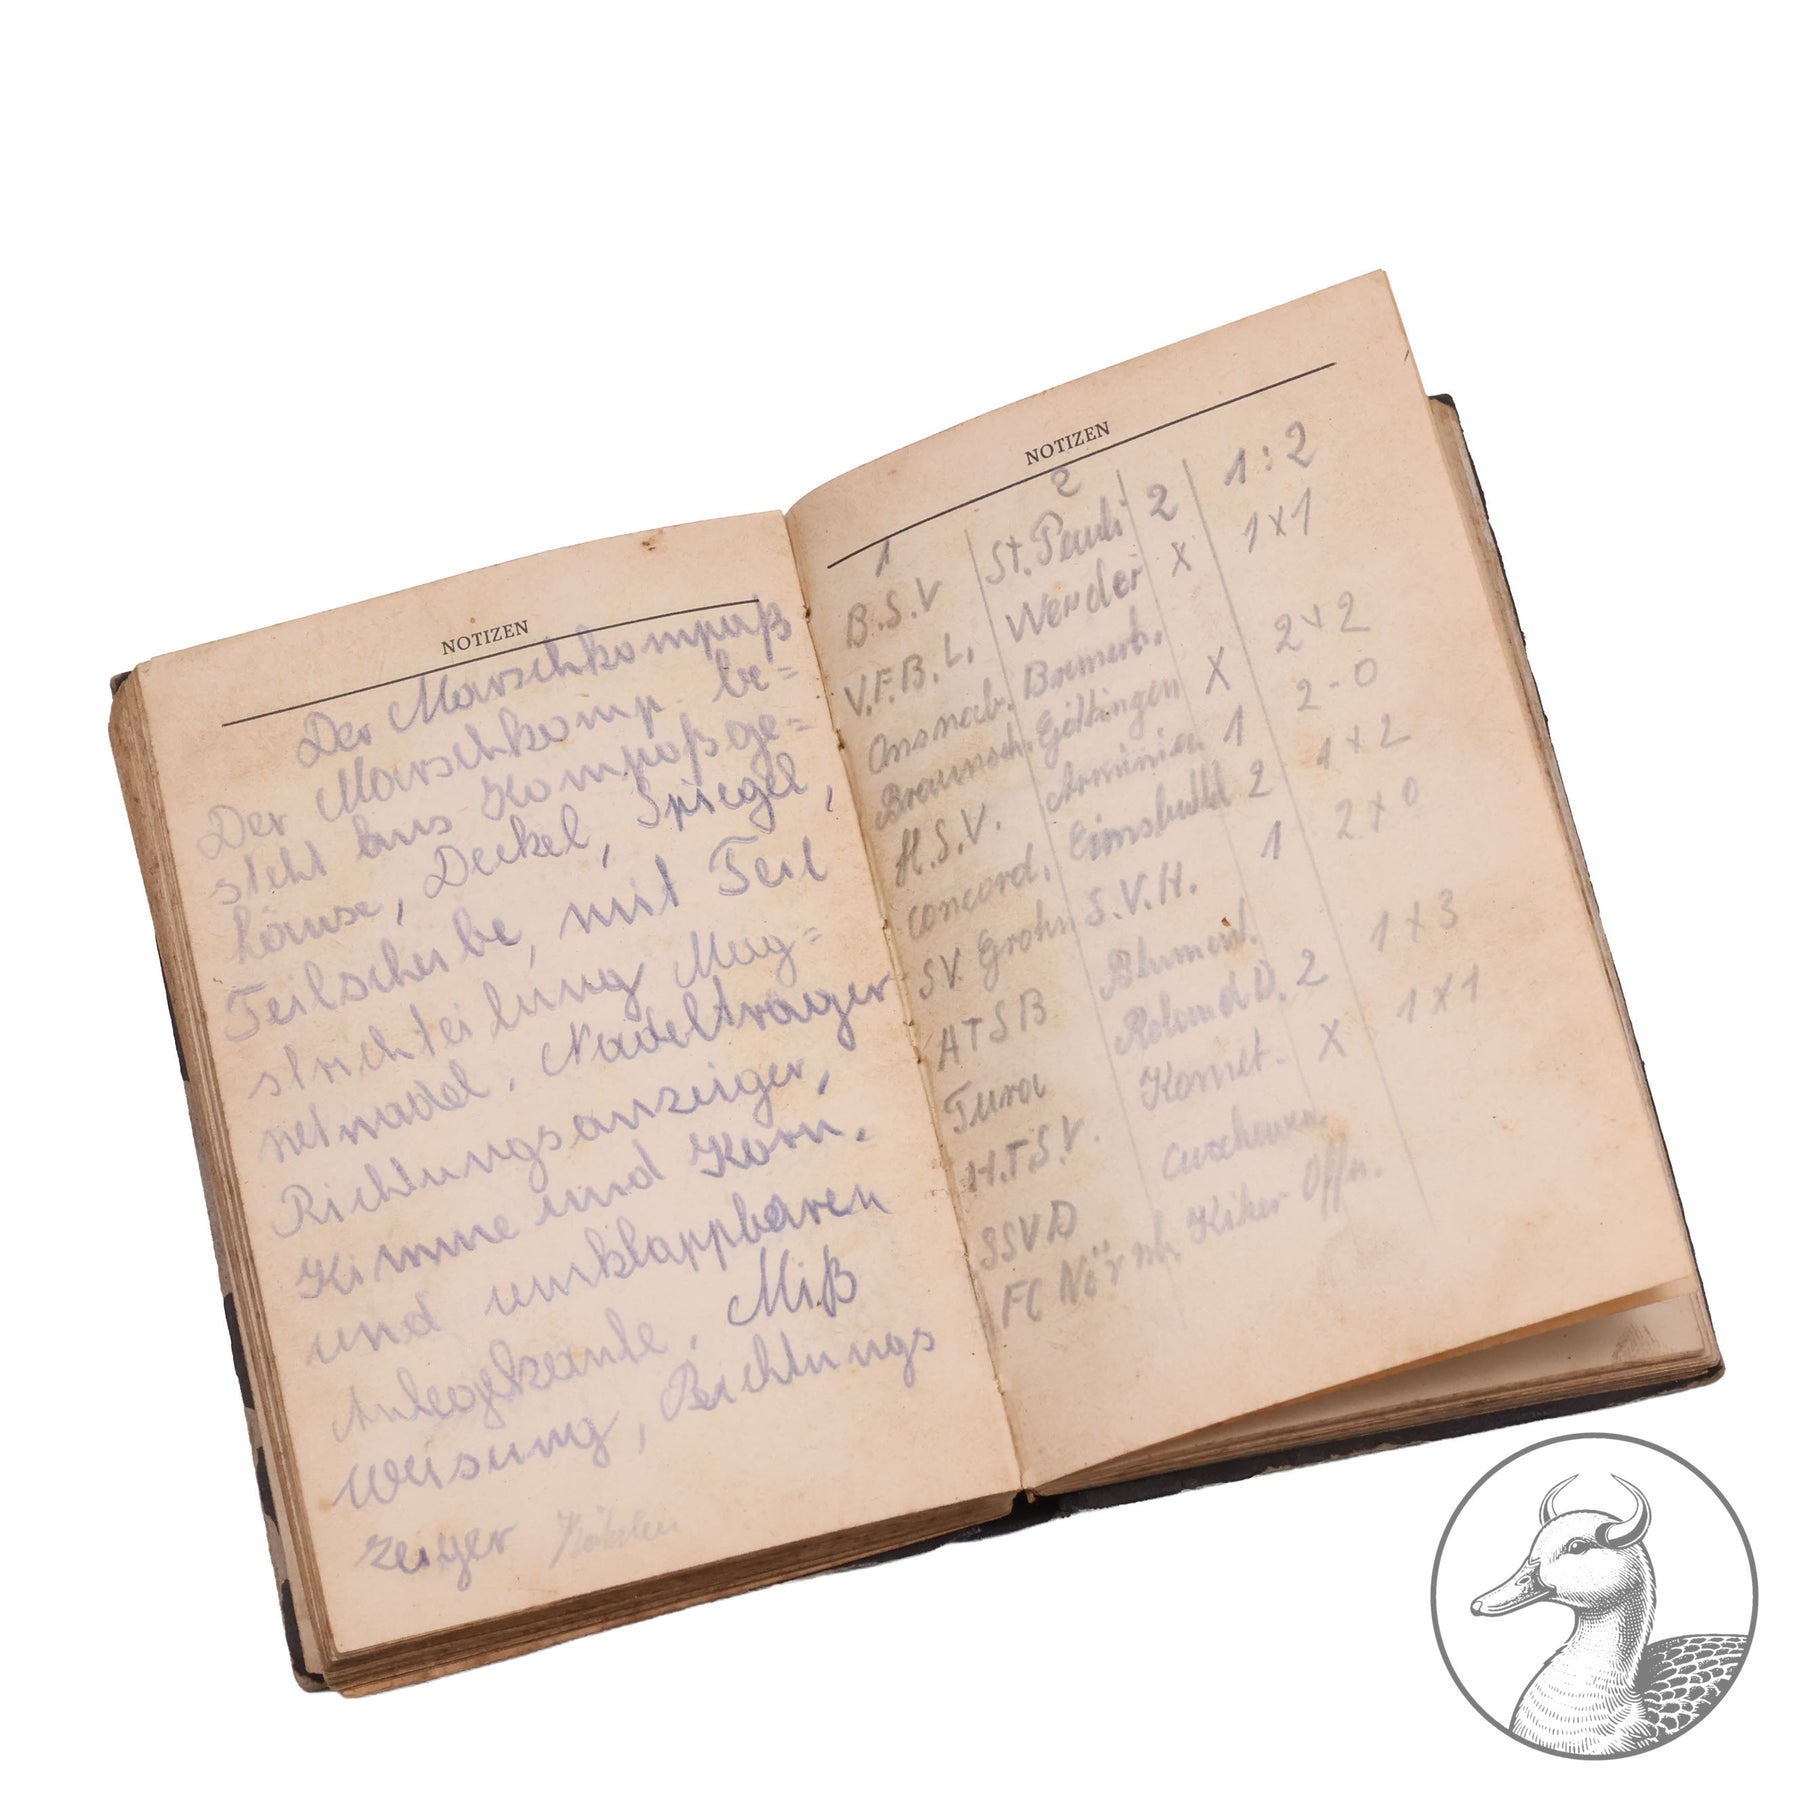 NOTIZEN
Der Marschkompaß
Der Marschkomp. be=
steht aus Kompaßge=
häuse, Deckel, Spiegel,
Teilscheibe, mit Teil
strichteilung Mag=
netnadel, Nadelträger
Richtungsanzeiger,
Kimme und Korn,
und umklappbaren
Anlegekante, Miß
weisung, Richtungs
zeiger
NOTIZEN
1 2
B.S.V St. Pauli 2 1:2
V.F.B.L. Werder X 1x1
Osnab. Bremerh.
Braunsch. Göttingen X 2x2
H.S.V. Arminia 1 2-0
Concord. Eimsbüttel 2 1x2
SV Grohn S.V.H. 1 2x0
ATSB Blument.
Tura Roland D. 2 1x3
H.T.S.V. Komet. X 1x1
SSV D Cuxhaven
FC Nörnb. Kiker Offn.